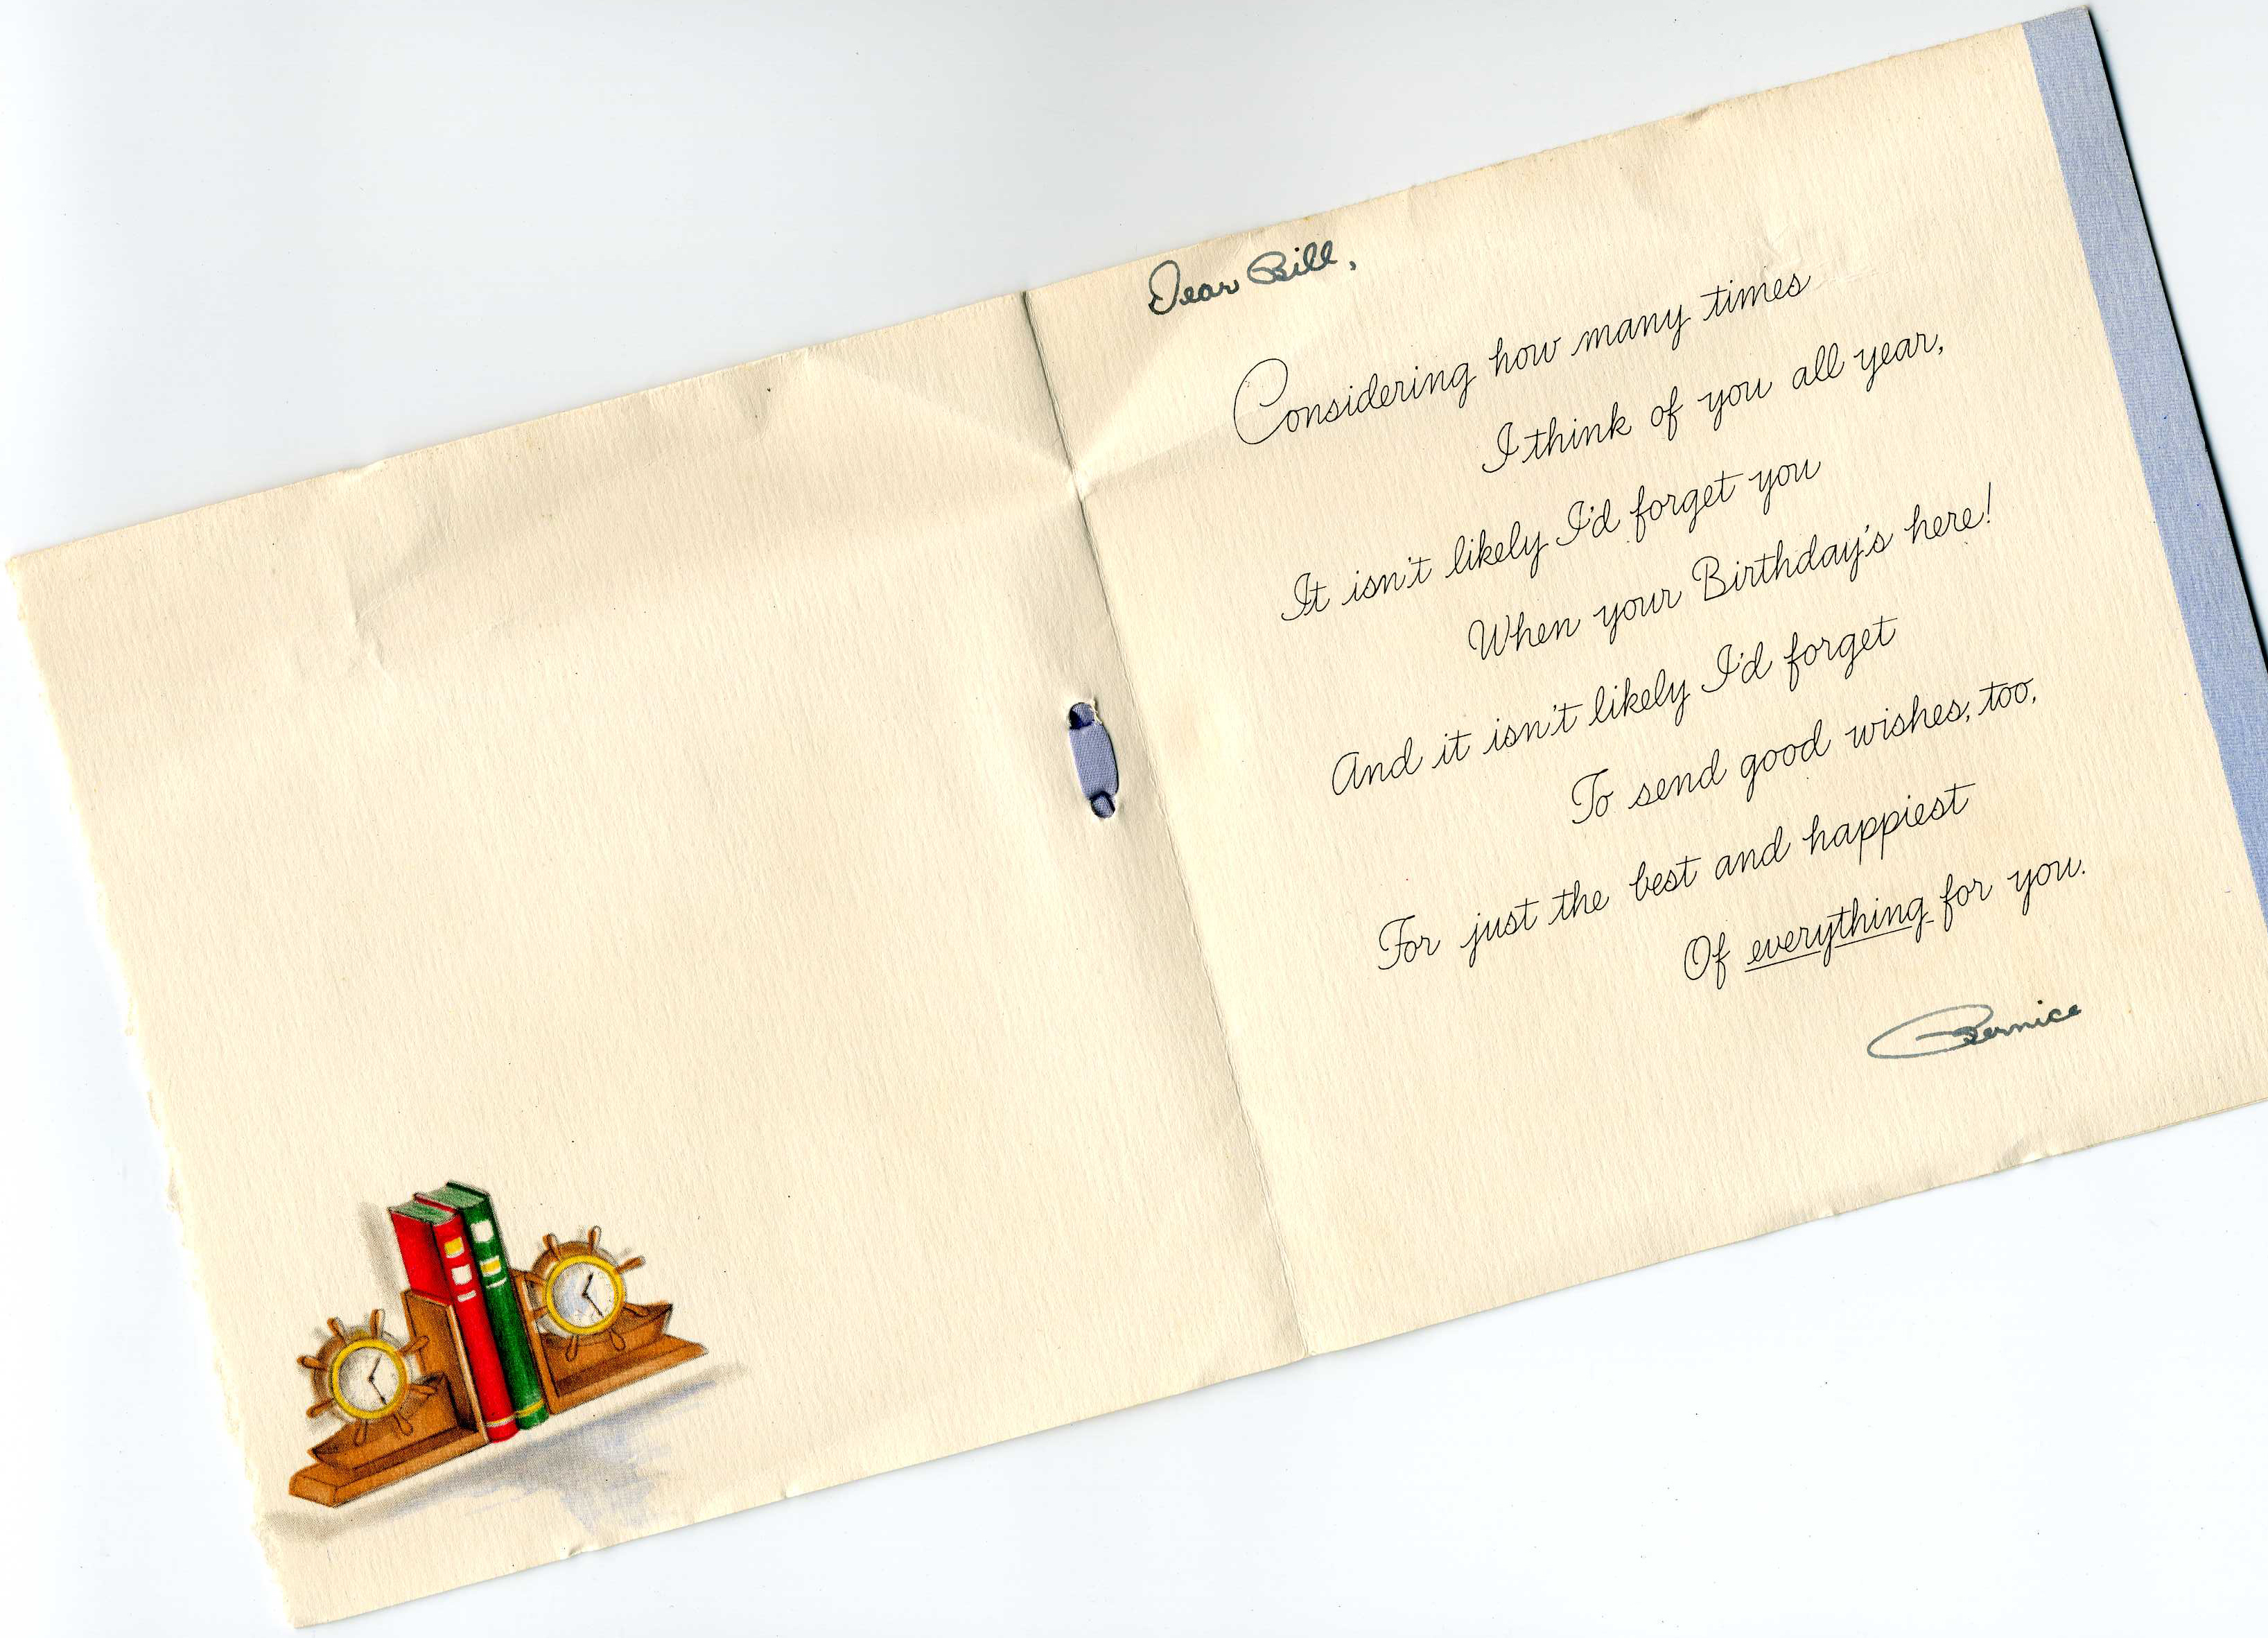 Dear Bill,
Considering how many times
I think of you all year,
It isn't likely I'd forget you
When your Birthday's here!
And it isn't likely I'd forget
To send good wishes, too,
For just the best and happiest
Of everything for you.
Bernice